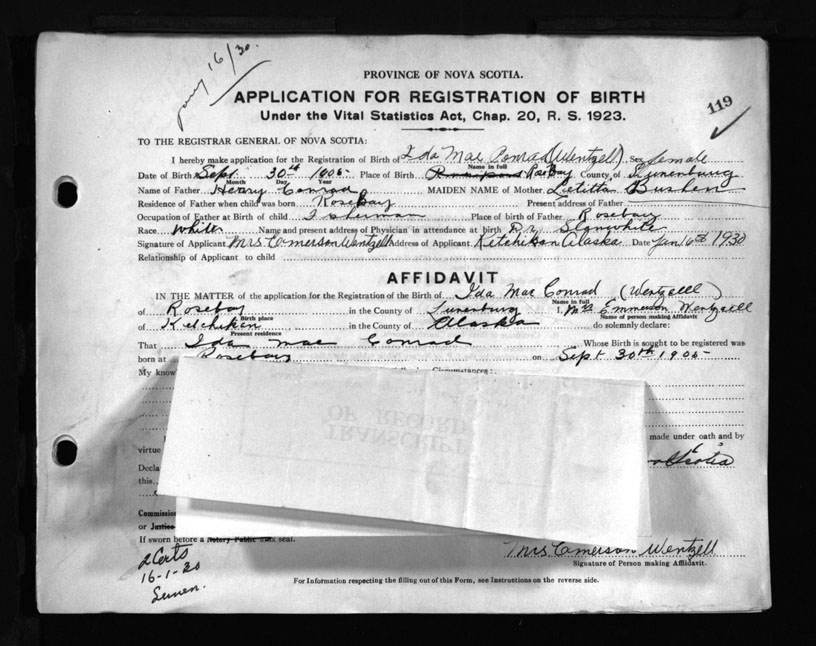 Jany 16/30.
PROVINCE OF NOVA SCOTIA.
APPLICATION FOR REGISTRATION OF BIRTH
119
Under the Vital Statistics Act, Chap. 20, R. S. 1923.
TO THE REGISTRAR GENERAL OF NOVA SCOTIA:
I hereby make application for the Registration of Birth of Ida Mae Conrad (Wentzell) Sex female
Name in full
Date of Birth Sept. 30th 1905- Place of Birth Rose Bay County of Lunenburg
Month Day Year
Name of Father Henry Conrad MAIDEN NAME of Mother Letitta Bushen
Residence of Father when child was born Rosebay Present address of Father
Occupation of Father at Birth of child Fisherman Place of birth of Father Rosebay
Race White Name and present address of Physician in attendance at birth Dr Slanwhite
Signature of Applicant Mrs Emerson Wentzell Address of Applicant Ketchikan Alaska Date Jan 16th 1930
Relationship of Applicant to child
AFFIDAVIT
IN THE MATTER of the application for the Registration of the Birth of Ida Mae Conrad (Wentzell)
Name in full
of Rosebay in the County of Lunenburg I, Mrs Emmerson Wentzell
Birth place Name of person making Affidavit
of Ketchiken in the County of Alaska do solemnly declare:
Present residence
That Ida mae Conrad Whose Birth is sought to be registered was
born at Rosebay on Sept 30th 1905-
My know Circumstances:
TRANSCRIPT
OF RECORD
made under oath and by
virtue
Decla
this
Commissio
or Justice
If sworn before a Notary Public seal.
Mrs Emerson Wentzell
Signature of Person making Affidavit.
2 Certs
16-1-30
For Information respecting the filling out of this Form, see Instructions on the reverse side.